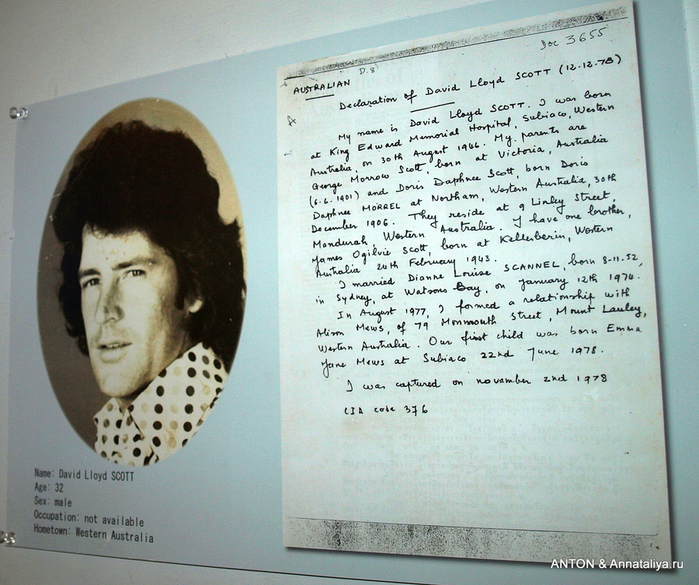 Doc 3655
D.8
AUSTRALIAN
Declaration of David Lloyd SCOTT (12-12.78)
My name is David Lloyd SCOTT. I was born
at King Edward Memorial Hospital, Subiaco, Western
Australia, on 30th August 1946. My parents are
George Morrow Scott, born at Victoria, Australia
(6.6.1901) and Doris Daphnee Scott, born Doris
Daphnee MORREL at Northam, Western Australia, 30th
December 1906. They reside at 9 Linley Street,
Mandurah, Western Australia. I have one brother,
James Ogilvie Scott, born at Kellerberin, Western
Australia 24th February 1943.
I married Dianne Louise SCANNEL, born 8-11.52,
in Sydney, at Watsons Bay, on January 12th 1974.
In August 1977, I formed a relationship with
Alison Mews, of 79 Monmouth Street, Mount Lawley,
Western Australia. Our first child was born Emma
Jane Mews at Subiaco 22nd June 1978.
I was captured on november 2nd 1978
CIA code 376
Name: David Lloyd SCOTT
Age: 32
Sex: male
Occupation: not available
Hometown: Western Australia
ANTON & Annataliya.ru